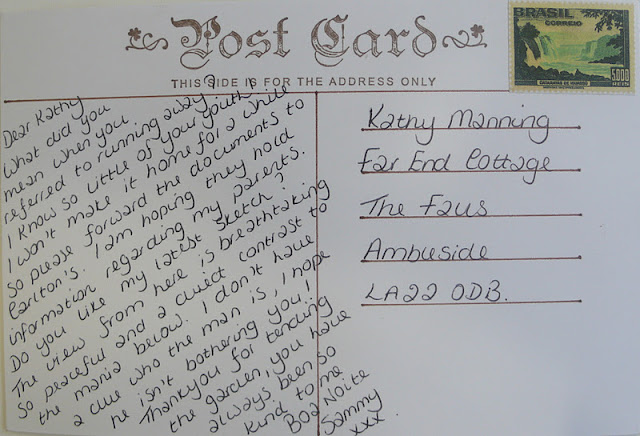 Post Card
THIS SIDE IS FOR THE ADDRESS ONLY
BRASIL
CORREIO
5000
Dear Kathy
What did you
mean when you
referred to running away?
I know so little of your youth.
I won't make it home for a while
So please forward the documents to
Carlton's. I am hoping they hold
information regarding my parents.
Do you like my latest sketch?
The view from here is breathtaking
So peaceful and a direct contrast to
the mania below. I don't have
a clue who the man is, I hope
he isn't bothering you!
Thankyou for tending
the garden, you have
always been so
kind to me
Boa Noite
Sammy
xxx
Kathy Manning
Far End Cottage
The Faus
Ambueside
LA22 0DB.